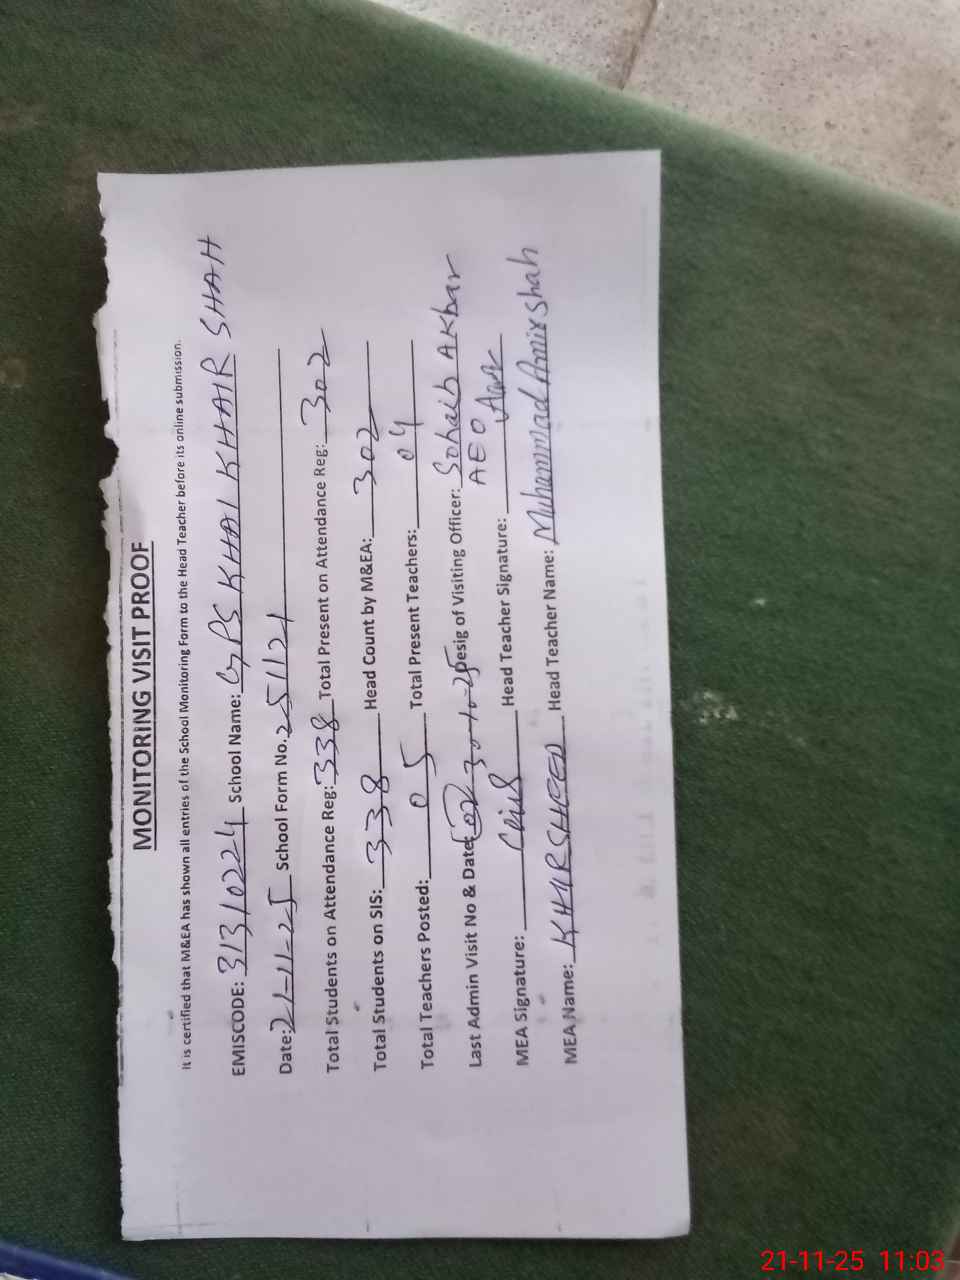 MONITORING VISIT PROOF
It is certified that M&EA has shown all entries of the School Monitoring Form to the Head Teacher before its online submission.
EMISCODE: 31310224 School Name: GPS KHAI KHAIR SHAH
Date: 21-11-25 School Form No. 251121
Total Students on Attendance Reg: 338 Total Present on Attendance Reg: 302
Total Students on SIS: 338 Head Count by M&EA: 302
Total Teachers Posted: 05 Total Present Teachers: 04
Last Admin Visit No & Date: 02 30-10-25 Desig of Visiting Officer: Sohaib Akbar
AEO
MEA Signature: Head Teacher Signature:
MEA Name: KHURSHEED Head Teacher Name: Muhammad Amir Shah
21-11-25 11:03